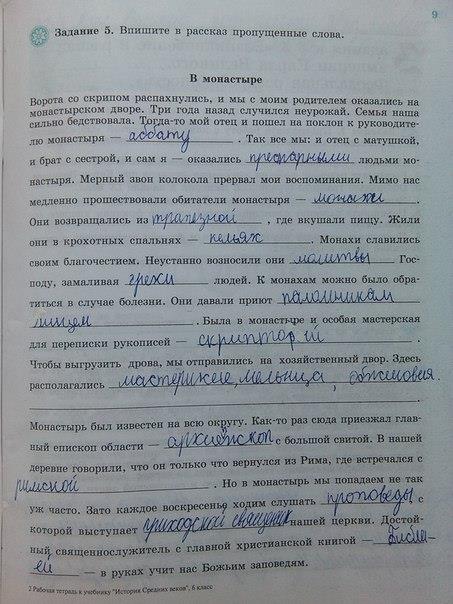 9
Задание 5. Впишите в рассказ пропущенные слова.
В монастыре
Ворота со скрипом распахнулись, и мы с моим родителем оказались на
монастырском дворе. Три года назад случился неурожай. Семья наша
сильно бедствовала. Тогда-то мой отец и пошел на поклон к руководите-
лю монастыря — аббату . Так все мы: и отец с матушкой,
и брат с сестрой, и сам я — оказались людьми мо-
настыря. Мерный звон колокола прервал мои воспоминания. Мимо нас
медленно прошествовали обитатели монастыря — монахи .
Они возвращались из трапезной , где вкушали пищу. Жили
они в крохотных спальнях — кельях . Монахи славились
своим благочестием. Неустанно возносили они молитвы Гос-
поду, замаливая грехи людей. К монахам можно было обра-
титься в случае болезни. Они давали приют паломникам
нищем . Была в монастыре и особая мастерская
для переписки рукописей — скрипторий .
Чтобы выгрузить дрова, мы отправились на хозяйственный двор. Здесь
располагались мастерские, мельница,
Монастырь был известен на всю округу. Как-то раз сюда приезжал глав-
ный епископ области — архиепископ с большой свитой. В нашей
деревне говорили, что он только что вернулся из Рима, где встречался с
римской . Но в монастырь мы попадаем не так
уж часто. Зато каждое воскресенье ходим слушать проповеды с
которой выступает приходской священик нашей церкви. Достой-
ный священнослужитель с главной христианской книгой — Библи-
ей — в руках учит нас Божьим заповедям.
2 Рабочая тетрадь к учебнику "История Средних веков", 6 класс